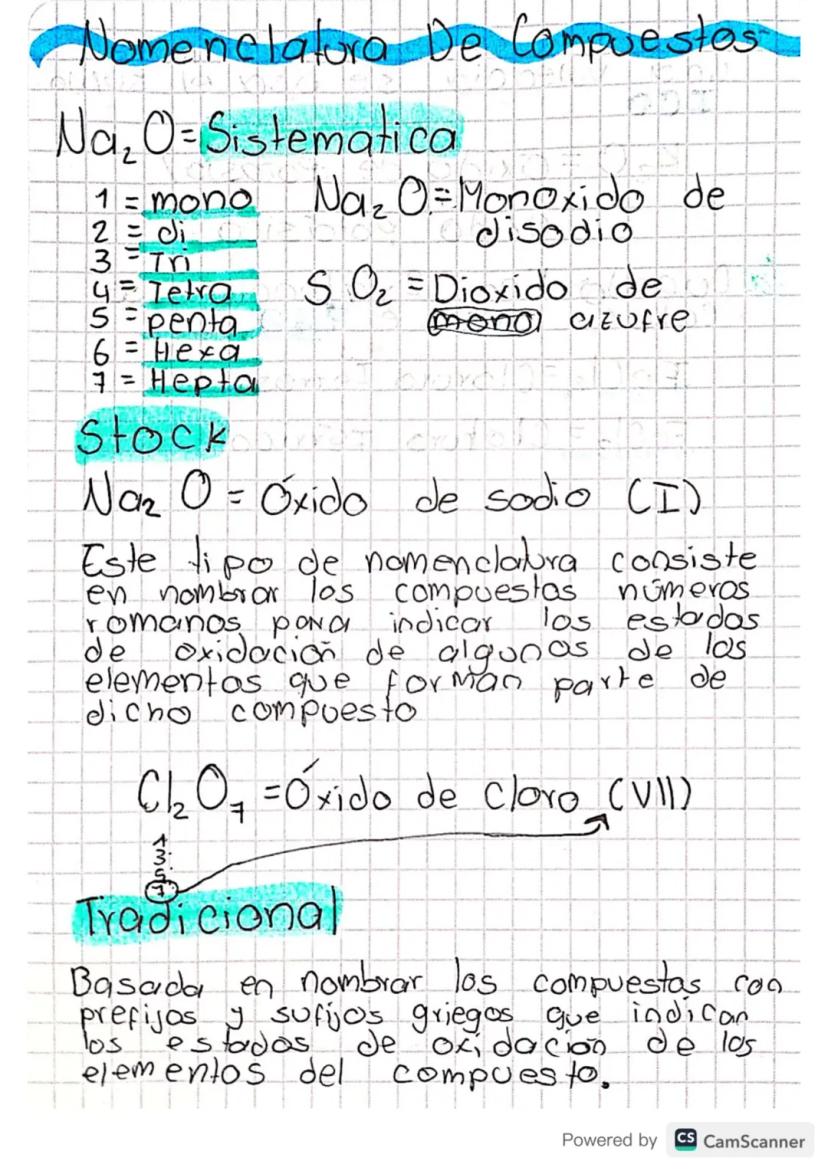 Nomenclatura De Compuestos
Na₂O = Sistematica
1 = mono
2 = di
3 = Tri
4 = Tetra
5 = penta
6 = Hexa
7 = Hepta
Na₂O = Monoxido de
disodio
SO₂ = Dioxido de
mono azufre
Stock
Na₂O = Óxido de sodio (I)
Este tipo de nomenclatura consiste
en nombrar los compuestos números
romanos para indicar los estados
de oxidación de algunos de los
elementos que forman parte de
dicho compuesto
Cl₂O₇ = Óxido de cloro (VII)
1
3
5
7
Tradicional
Basada en nombrar los compuestos con
prefijos y sufijos griegos que indican
los estados de oxidacion de los
elementos del compuesto.
Powered by CS CamScanner